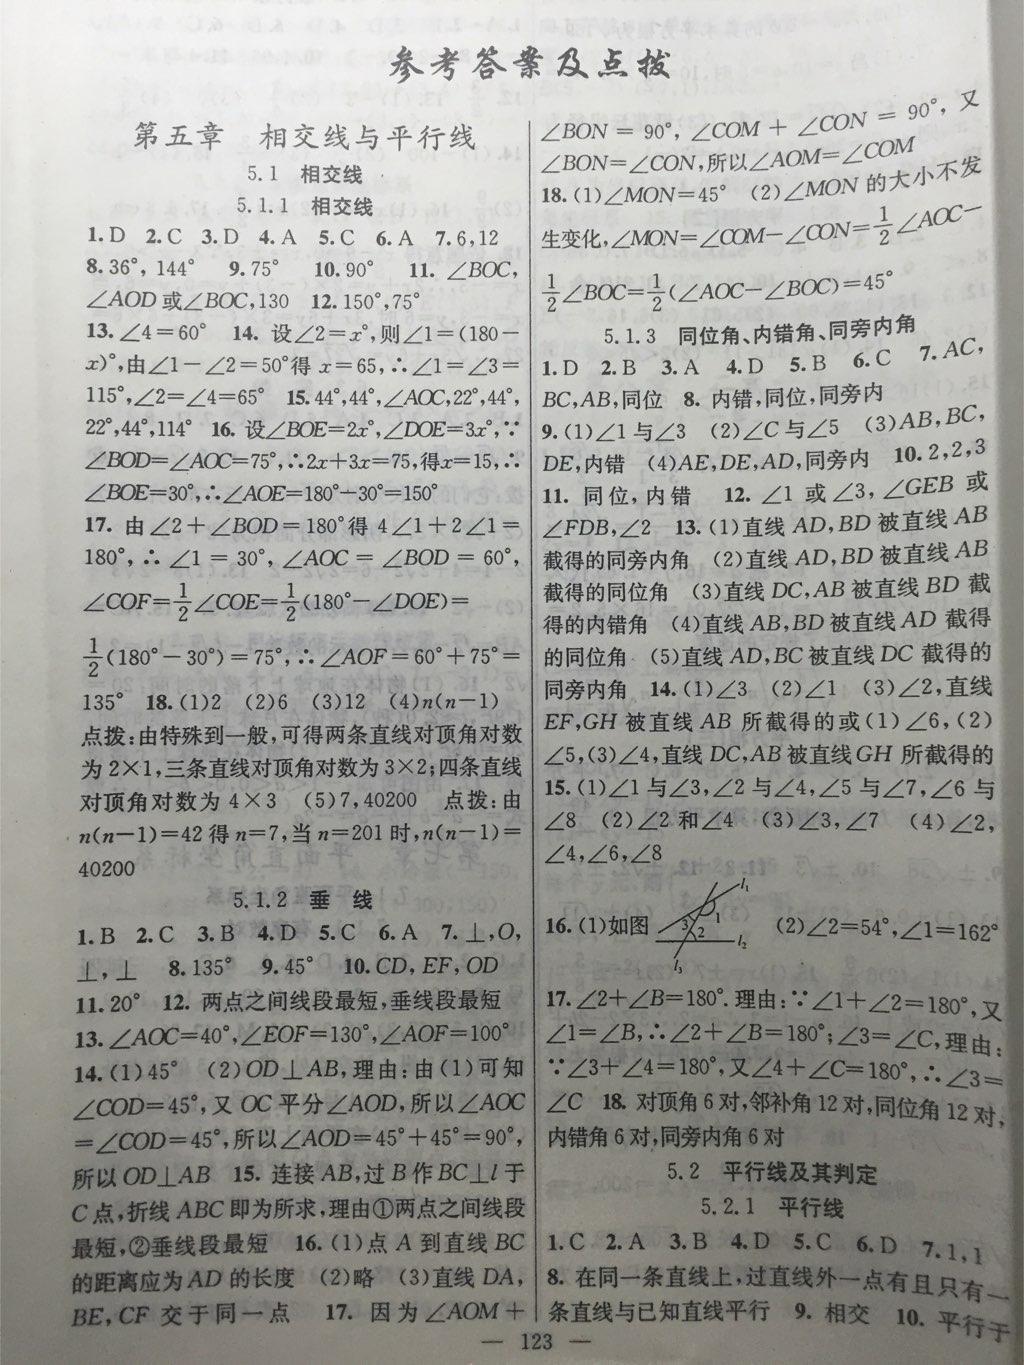 参考答案及点拨
第五章 相交线与平行线
5.1 相交线
5.1.1 相交线
1.D 2.C 3.D 4.A 5.C 6.A 7.6,12
8.36°,144° 9.75° 10.90° 11.∠BOC,
∠AOD或∠BOC,130 12.150°,75°
13.∠4=60° 14.设∠2=x°,则∠1=(180-
x)°,由∠1-∠2=50°得x=65,∴∠1=∠3=
115°,∠2=∠4=65° 15.44°,44°,∠AOC,22°,44°,
22°,44°,114° 16.设∠BOE=2x°,∠DOE=3x°,∵
∠BOD=∠AOC=75°,∴2x+3x=75,得x=15,∴
∠BOE=30°,∴∠AOE=180°-30°=150°
17.由∠2+∠BOD=180°得4∠1+2∠1=
180°,∴∠1=30°,∠AOC=∠BOD=60°,
∠COF=1/2∠COE=1/2(180°-∠DOE)=
1/2(180°-30°)=75°,∴∠AOF=60°+75°=
135° 18.(1)2 (2)6 (3)12 (4)n(n-1)
点拨:由特殊到一般,可得两条直线对顶角对数
为2×1,三条直线对顶角对数为3×2;四条直线
对顶角对数为4×3 (5)7,40200 点拨:由
n(n-1)=42得n=7,当n=201时,n(n-1)=
40200
5.1.2 垂 线
1.B 2.C 3.B 4.D 5.C 6.A 7.⊥,O,
⊥,⊥ 8.135° 9.45° 10.CD,EF,OD
11.20° 12.两点之间线段最短,垂线段最短
13.∠AOC=40°,∠EOF=130°,∠AOF=100°
14.(1)45° (2)OD⊥AB,理由:由(1)可知
∠COD=45°,又OC平分∠AOD,所以∠AOC
=∠COD=45°,所以∠AOD=45°+45°=90°,
所以OD⊥AB 15.连接AB,过B作BC⊥l于
C点,折线ABC即为所求,理由①两点之间线段
最短,②垂线段最短 16.(1)点A到直线BC
的距离应为AD的长度 (2)略 (3)直线DA,
BE,CF交于同一点 17.因为∠AOM+
∠BON=90°,∠COM+∠CON=90°,又
∠BON=∠CON,所以∠AOM=∠COM
18.(1)∠MON=45° (2)∠MON的大小不发
生变化,∠MON=∠COM-∠CON=1/2∠AOC-
1/2∠BOC=1/2(∠AOC-∠BOC)=45°
5.1.3 同位角、内错角、同旁内角
1.D 2.B 3.A 4.D 5.B 6.C 7.AC,
BC,AB,同位 8.内错,同位,同旁内
9.(1)∠1与∠3 (2)∠C与∠5 (3)AB,BC,
DE,内错 (4)AE,DE,AD,同旁内 10.2,2,3
11.同位,内错 12.∠1或∠3,∠GEB或
∠FDB,∠2 13.(1)直线AD,BD被直线AB
截得的同旁内角 (2)直线AD,BD被直线AB
截得的同位角 (3)直线DC,AB被直线BD截
得的内错角 (4)直线AB,BD被直线AD截得
的同位角 (5)直线AD,BC被直线DC截得的
同旁内角 14.(1)∠3 (2)∠1 (3)∠2,直线
EF,GH被直线AB所截得的或(1)∠6,(2)
∠5,(3)∠4,直线DC,AB被直线GH所截得的
15.(1)∠1与∠3,∠2与∠4,∠5与∠7,∠6与
∠8 (2)∠2和∠4 (3)∠3,∠7 (4)∠2,
∠4,∠6,∠8
16.(1)如图 l₁ 1 3 2 l₂ l₃ (2)∠2=54°,∠1=162°
17.∠2+∠B=180°.理由:∵∠1+∠2=180°,又
∠1=∠B,∴∠2+∠B=180°;∠3=∠C,理由:
∵∠3+∠4=180°,又∠4+∠C=180°,∴∠3=
∠C 18.对顶角6对,邻补角12对,同位角12对,
内错角6对,同旁内角6对
5.2 平行线及其判定
5.2.1 平行线
1.C 2.A 3.B 4.D 5.C 6.D 7.1,1
8.在同一条直线上,过直线外一点有且只有一
条直线与已知直线平行 9.相交 10.平行于
— 123 —